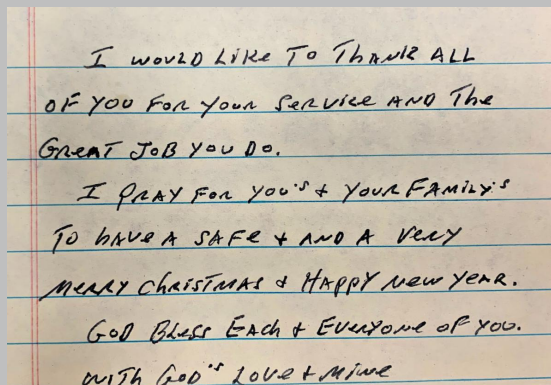 I would like to thank all
of you for your service and the
great job you do.
I pray for you's + your family's
to have a safe + and a very
merry christmas + happy new year.
God bless each + everyone of you.
with God's love + mine